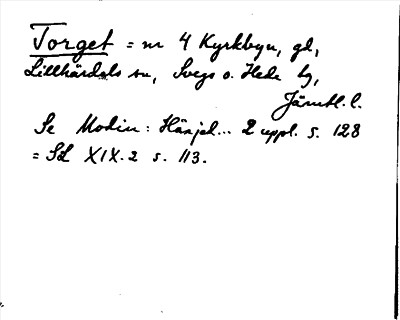 Torget = nr 4 Kyrkbyn, gd,
Lillhärdals sn, Svegs o. Hede tg,
Jämtl. l.
Se Modin: Härjed... 2 uppl. s. 128
= SvL XIX.2 s. 113.